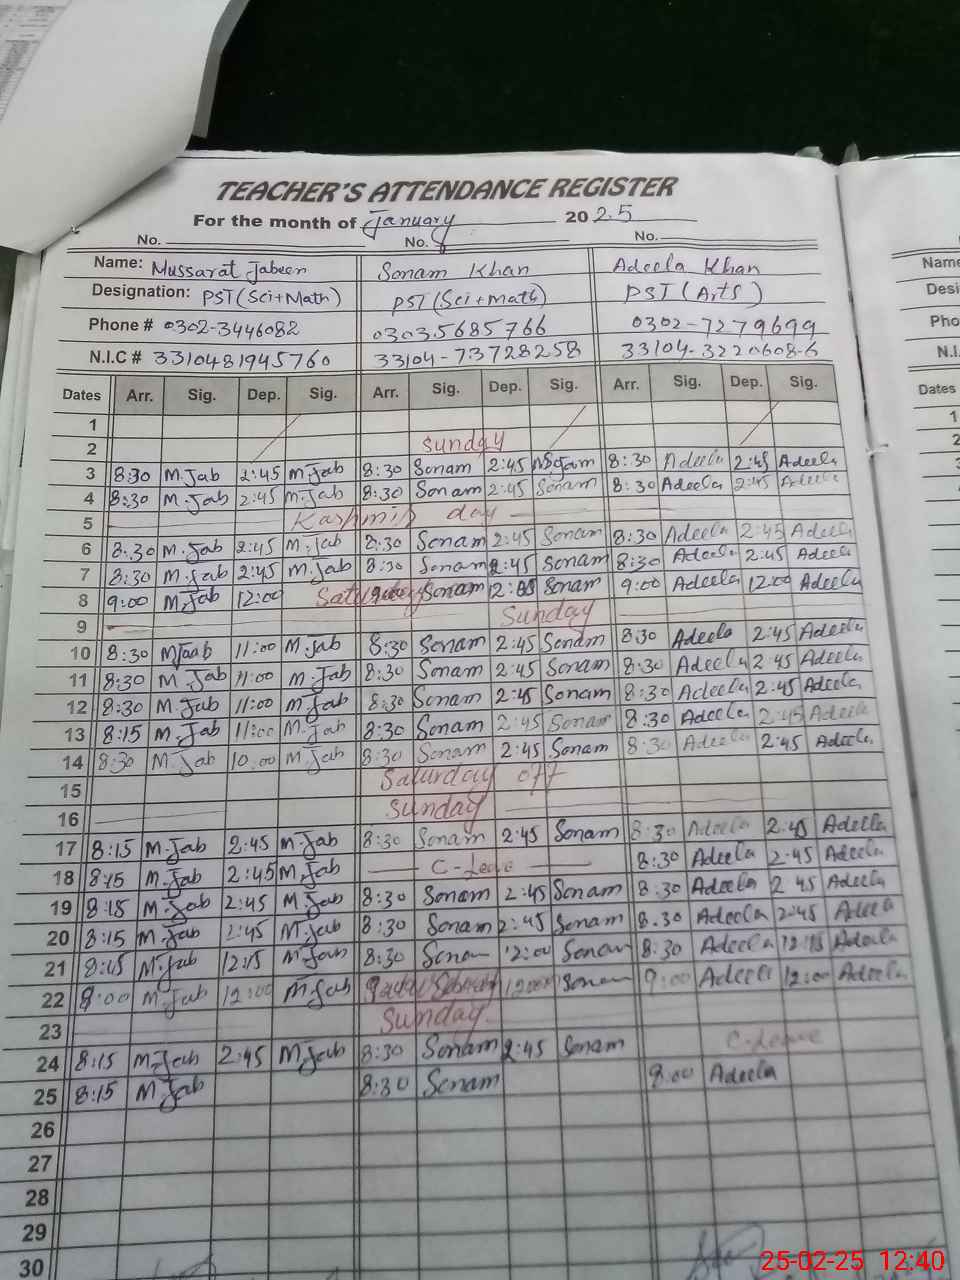 TEACHER'S ATTENDANCE REGISTER
For the month of January 2025
No. No. No.
Name: Mussarat Jabeen Sonam Khan Adeela Khan
Designation: PST(Sci+Math) PST(Sci+Math) PST(Arts)
Phone # 0302-3446082 03035685766 0302-7279699
N.I.C # 3310481945760 33104-73728258 33104-3220608-6
Dates Arr. Sig. Dep. Sig. Arr. Sig. Dep. Sig. Arr. Sig. Dep. Sig.
1
2 Sunday
3 8:30 M.Jab 2:45 M.Jab 8:30 Sonam 2:45 8:30 Adeela 2:45 Adeela
4 8:30 M.Jab 2:45 M.Jab 8:30 Sonam 2:45 Sonam 8:30 Adeela 2:45 Adeela
5 Kashmir day
6 8:30 M.Jab 2:45 M.Jab 8:30 Sonam 2:45 Sonam 8:30 Adeela 2:45 Adeela
7 8:30 M.Jab 2:45 M.Jab 8:30 Sonam 2:45 Sonam 8:30 Adeela 2:45 Adeela
8 9:00 M.Jab 12:00 Saturday Sonam Sonam 9:00 Adeela 12:00 Adeela
9 Sunday
10 8:30 MJaab 11:00 M.Jab 8:30 Sonam 2:45 Sonam 8:30 Adeela 2:45 Adeela
11 8:30 M.Jab 11:00 M.Jab 8:30 Sonam 2:45 Sonam 8:30 Adeela 2:45 Adeela
12 8:30 M.Jab 11:00 M.Jab 8:30 Sonam 2:45 Sonam 8:30 Adeela 2:45 Adeela
13 8:15 M.Jab 11:00 M.Jab 8:30 Sonam 2:45 Sonam 8:30 Adeela 2:45 Adeela
14 8:30 M.Jab 10:00 M.Jab 8:30 Sonam 2:45 Sonam 8:30 Adeela 2:45 Adeela
15 Saturday off
16 Sunday
17 8:15 M.Jab 2:45 M.Jab 8:30 Sonam 2:45 Sonam 8:30 Adeela 2:45 Adeela
18 8:15 M.Jab 2:45 M.Jab C-Leave 8:30 Adeela 2:45 Adeela
19 8:15 M.Jab 2:45 M.Jab 8:30 Sonam 2:45 Sonam 8:30 Adeela 2 45 Adeela
20 8:15 M.Jab 2:45 M.Jab 8:30 Sonam 2:45 Sonam 8:30 Adeela 2:45 Adeela
21 8:15 M.Jab 12:15 M.Jab 8:30 Sonam 12:00 Sonam 8:30 Adeela 12:15 Adeela
22 9:00 M.Jab 12:00 M.Jab Sonam 9:00 Adeela 12:00 Adeela
23 Sunday
24 8:15 M.Jab 2:45 M.Jab 8:30 Sonam 2:45 Sonam C-Leave
25 8:15 M.Jab 8:30 Sonam 8:00 Adeela
26
27
28
29
30
Name
Desi
Pho
N.I.
Dates
1
2
25-02-25 12:40